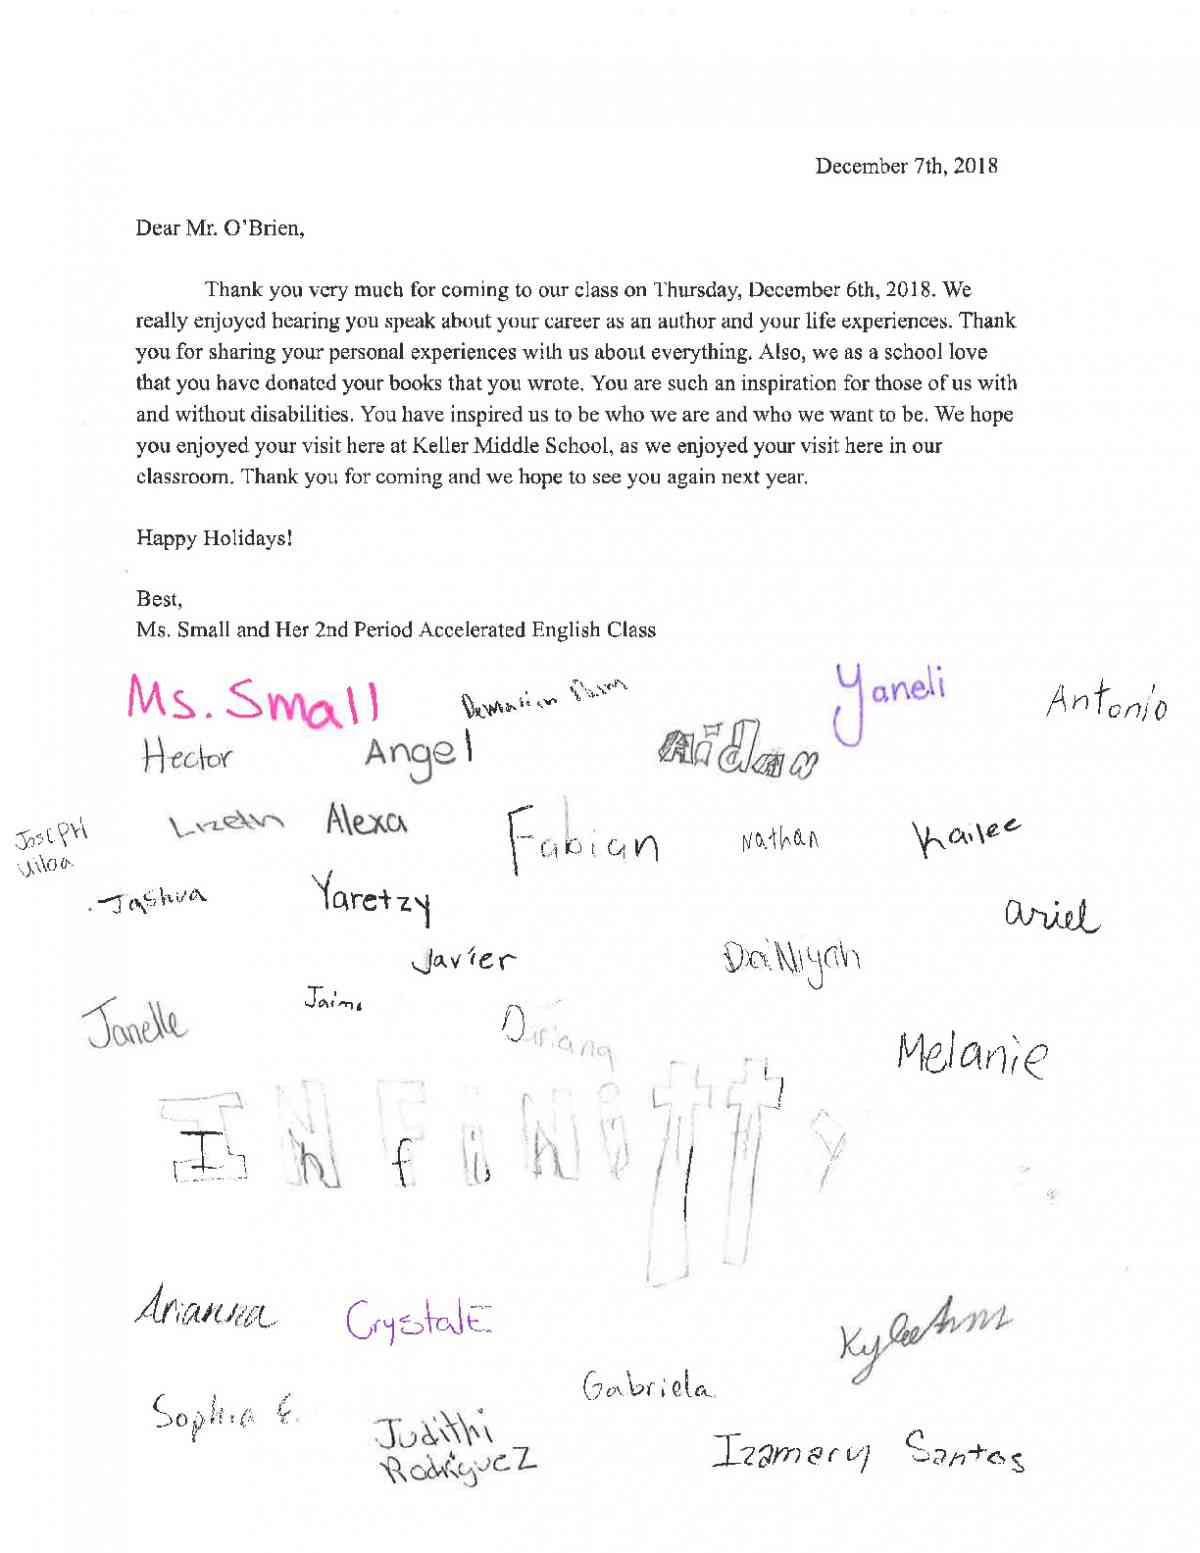 December 7th, 2018
Dear Mr. O'Brien,
Thank you very much for coming to our class on Thursday, December 6th, 2018. We
really enjoyed hearing you speak about your career as an author and your life experiences. Thank
you for sharing your personal experiences with us about everything. Also, we as a school love
that you have donated your books that you wrote. You are such an inspiration for those of us with
and without disabilities. You have inspired us to be who we are and who we want to be. We hope
you enjoyed your visit here at Keller Middle School, as we enjoyed your visit here in our
classroom. Thank you for coming and we hope to see you again next year.
Happy Holidays!
Best,
Ms. Small and Her 2nd Period Accelerated English Class
Ms. Small Yaneli Antonio
Hector Angel Aidan
Joseph Alexa Fabian Nathan Kailee
Jashua Yaretzy Ariel
Javier DaiNiyah
Janelle
Melanie
Infinitty
Arianna CrystalE KyleeAnn
Sophia E. Gabriela
Judithi
Rodriguez Izamary Santos